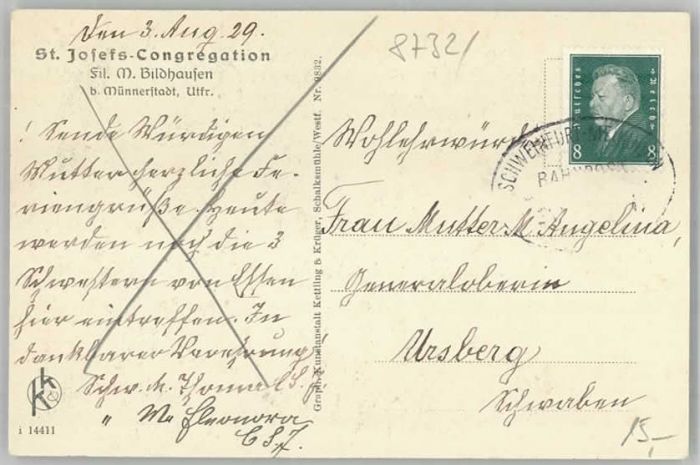 Den 3. Aug. 29.
St. Josefs-Congregation
Fil. M. Bildhausen
b. Münnerstadt, Utfr.
! Sende Würdigen
Mutter herzliche Fe-
riengrüße. Heute
werden noch die 3
Schwestern von Essen
hier eintreffen. In
dankbarer Verehrung!
Schw. M. Thoma C.S.J.
" M. Eleonora
C.S.J.
i 14411
Graph. Kunstanstalt Kettling & Krüger, Schalksmühle/Westf. Nr. 9832.
87321
Deutsches Reich
8 8
SCHWEINFURT
BAHNPOST
Wohlehrwürd
Frau Mutter M. Angelina,
Generaloberin
Ursberg
Schwaben
15,-